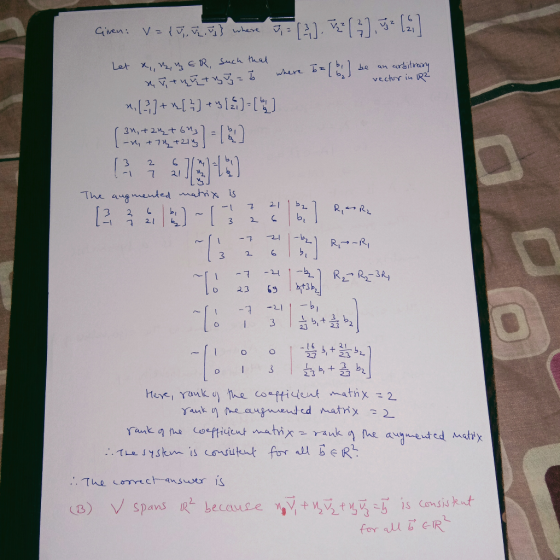 Given: V = {v⃗₁, v⃗₂, v⃗₃} where v⃗₁ = [3 -1], v⃗₂ = [2 7], v⃗₃ = [6 21]
Let x₁, x₂, x₃ ∈ ℝ, such that
x₁v⃗₁ + x₂v⃗₂ + x₃v⃗₃ = b⃗ where b⃗ = [b₁ b₂] be an arbitrary
vector in ℝ²
x₁[3 -1] + x₂[2 7] + x₃[6 21] = [b₁ b₂]
[3x₁ + 2x₂ + 6x₃
-x₁ + 7x₂ + 21x₃] = [b₁ b₂]
[3 2 6
-1 7 21] [x₁ x₂ x₃] = [b₁ b₂]
The augmented matrix is
[3 2 6 | b₁
-1 7 21 | b₂] ~ [-1 7 21 | b₂
3 2 6 | b₁] R₁ ↔ R₂
~ [1 -7 -21 | -b₂
3 2 6 | b₁] R₁ → -R₁
~ [1 -7 -21 | -b₂
0 23 69 | b₁+3b₂] R₂ → R₂-3R₁
~ [1 -7 -21 | -b₁
0 1 3 | 1/23 b₁ + 3/23 b₂]
~ [1 0 0 | b₁ + 21/23 b₂
0 1 3 | 1/23 b₁ + 3/23 b₂]
Here, rank of the coefficient matrix = 2
rank of the augmented matrix = 2
rank of the coefficient matrix = rank of the augmented matrix
∴ The system is consistent for all b⃗ ∈ ℝ².
∴ The correct answer is
(B) V spans ℝ² because x₁v⃗₁ + x₂v⃗₂ + x₃v⃗₃ = b⃗ is consistent
for all b⃗ ∈ ℝ²